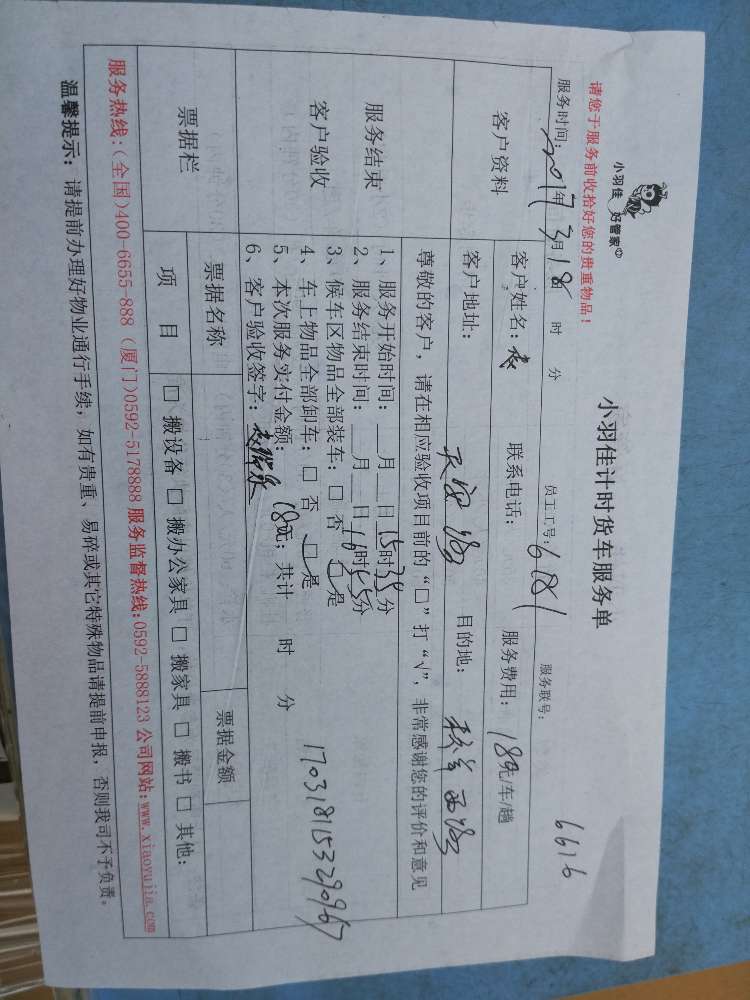 小羽佳 好管家
请您于服务前收拾好您的贵重物品！
小羽佳计时货车服务单
6616
服务时间：2017年3月18日 时 分 员工工号：6181 服务联号：
客户资料
客户姓名： 联系电话： 服务费用：189元/车/趟
客户地址： 目的地：
服务结束
客户验收
尊敬的客户，请在相应验收项目前的“□”打“√”，非常感谢您的评价和意见
1、服务开始时间：__月__日15时35分
2、服务结束时间：__月__日16时55分
3、候车区物品全部装车：□ 否 □是
4、车上物品全部卸车：□ 否 □是
5、本次服务实付金额：189元；共计 时 分
6、客户验收签字：
1703181153290967
票据栏 票据名称 票据金额
项 目 □ 搬设备 □ 搬办公家具 □ 搬家具 □ 搬书 □ 其他：
服务热线：(全国)400-6655-888 (厦门)0592-5178888 服务监督热线:0592-5888123 公司网站:www.xiaoyujia.com
温馨提示：请提前办理好物业通行手续；如有贵重、易碎或其它特殊物品请提前申报，否则我司不予负责。